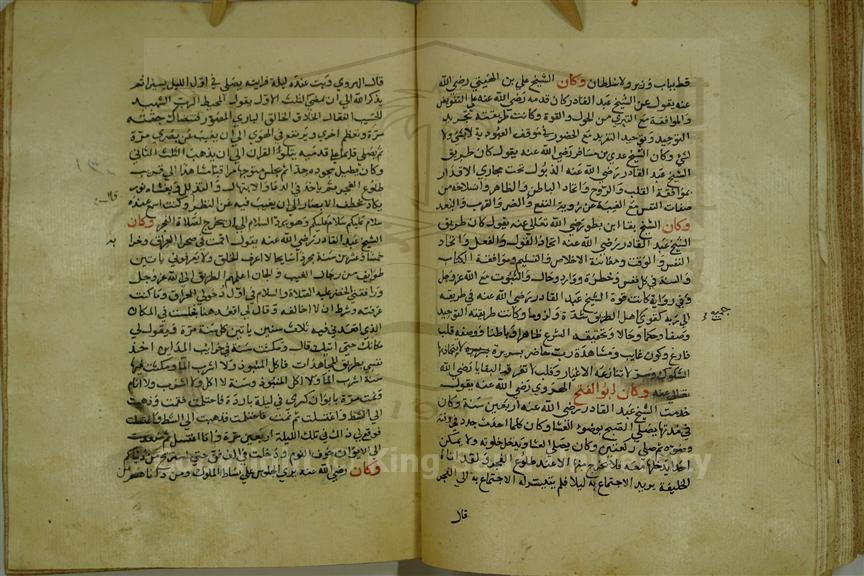 قط بباب وزير ولا سلطان وكان الشيخ علي بن الهيتي رضي الله
عنه يقول عن الشيخ عبد القادر كان قدمه رضي الله عنه على التفويض
والموافقة مع التبري من الحول والقوة وكانت طريقته تجريد
التوحيد وتوحيد التفريد مع الحضور في موقف العبودية لا بشي ولا
لشي وكان الشيخ عدي بن مسافر رضي الله عنه يقول كان طريق
الشيخ عبد القادر رضي الله عنه الذبول تحت مجاري الاقدار
بموافقة القلب والروح واتحاد الباطن والظاهر وانسلاخه من
صفات النفس مع الغيبة عن روية النفع والضر والقرب والبعد
وكان الشيخ بقا ابن بطو رضي الله تعالى عنه يقول كان طريق
الشيخ عبد القادر رضي الله عنه اتحاد القول والفعل واتحاد
النفس والوقت ومعانقة الاخلاص والتسليم وموافقة الكتاب
والسنة في كل نفس وخطرة ووارد وحال والثبوت مع الله عز وجل
وفي رواية كانت قوة الشيخ عبد القادر رضي الله عنه في طريقه
الى ربه كقوى جميع اهل الطريق شدة ولزوما وكانت طريقته التوحيد
وصفا وحكما وحالا وتحقيقه الشرع ظاهرا وباطنا ووصفه قلب
فارغ وكون غايب ومشاهدة رب حاضر بسريرة لا تتجاذبها
الشكوك وسر لا تنازعه الاغيار وقلب لا تفرقه البقايا رضي الله
تعالى عنه وكان ابو الفتح الهروي رضي الله عنه يقول
خدمت الشيخ عبد القادر رضي الله عنه اربعين سنة وكان
في مدتها يصلي الصبح بوضوء العشا وكان كلما احدث جدد في وقته
وضوءه ثم صلى ركعتين وكان يصلي العشا ويدخل خلوته ولا يمكن
احدا يدخلها معه فلا يخرج منها الا عند طلوع الفجر ولقد اتاه
الخليفة يريد الاجتماع به ليلا فلم يتيسر له الاجتماع به الى الفجر
قال
قال الهروي وبت عنده ليلة فرايته يصلي في اول الليل يسيرا ثم
يذكر الله الى ان يمضي الثلث الاول يقول المحيط الرب الشهيد
الحسيب الفعال الخلاق الخالق الباري المصور فتتضاءل جثته
مرة وتعظم اخرى ويرتفع في الهوى الى ان يغيب عن بصري مرة
ثم يصلي قايما على قدميه يتلوا القران الى ان يذهب الثلث الثاني
وكان يطيل سجوده جدا ثم يجلس متوجها مراقبا مشاهدا الى قريب
طلوع الفجر ثم ياخذ في الدعا والابتهال والتذلل ويغشاه نور
يكاد يخطف الابصار الى ان يغيب فيه عن النظر وكنت اسمع عنده
سلام عليكم سلام عليكم وهو يرد السلام الى ان يخرج لصلاة الفجر وكان
الشيخ عبد القادر رضي الله عنه يقول اقمت في صحرا العراق وخرابه
خمسا وعشرين سنة مجردا سايحا لا اعرف الخلق ولا يعرفوني ياتين
طوايف من رجال الغيب والجان اعلمهم الطريق الى الله عز وجل
ورافقني الخضر عليه الصلاة والسلام في اول دخولي العراق وما كنت
عرفته وشرط ان لا اخالفه وقال لي اقعد هنا فجلست في المكان
الذي اقعدني فيه ثلاث سنين ياتيني كل سنة مرة ويقول لي
مكانك حتى اتيك قال ومكثت سنة في خرايب المداين اخذ
نفسي بطريق المجاهدات فاكل المنبوذ ولا اشرب الما
سنة اشرب الما ولا اكل المنبوذ وسنة لا اكل ولا اشرب ولا انام
ونمت مرة بايوان كسرى في ليلة باردة فاحتلمت فقمت وذهبت
الى الشط واغتسلت ثم نمت فاحتلمت فذهبت الى الشط واغتسلت
فوقع لي ذلك في تلك الليلة اربعين مرة وانا اغتسل ثم صعدت
الى الايوان خوف النوم ودخلت في الف فن حتى استريح من دنياكم
وكان رضي الله عنه يرى الجلوس على بساط الملوك ومن داناهم من